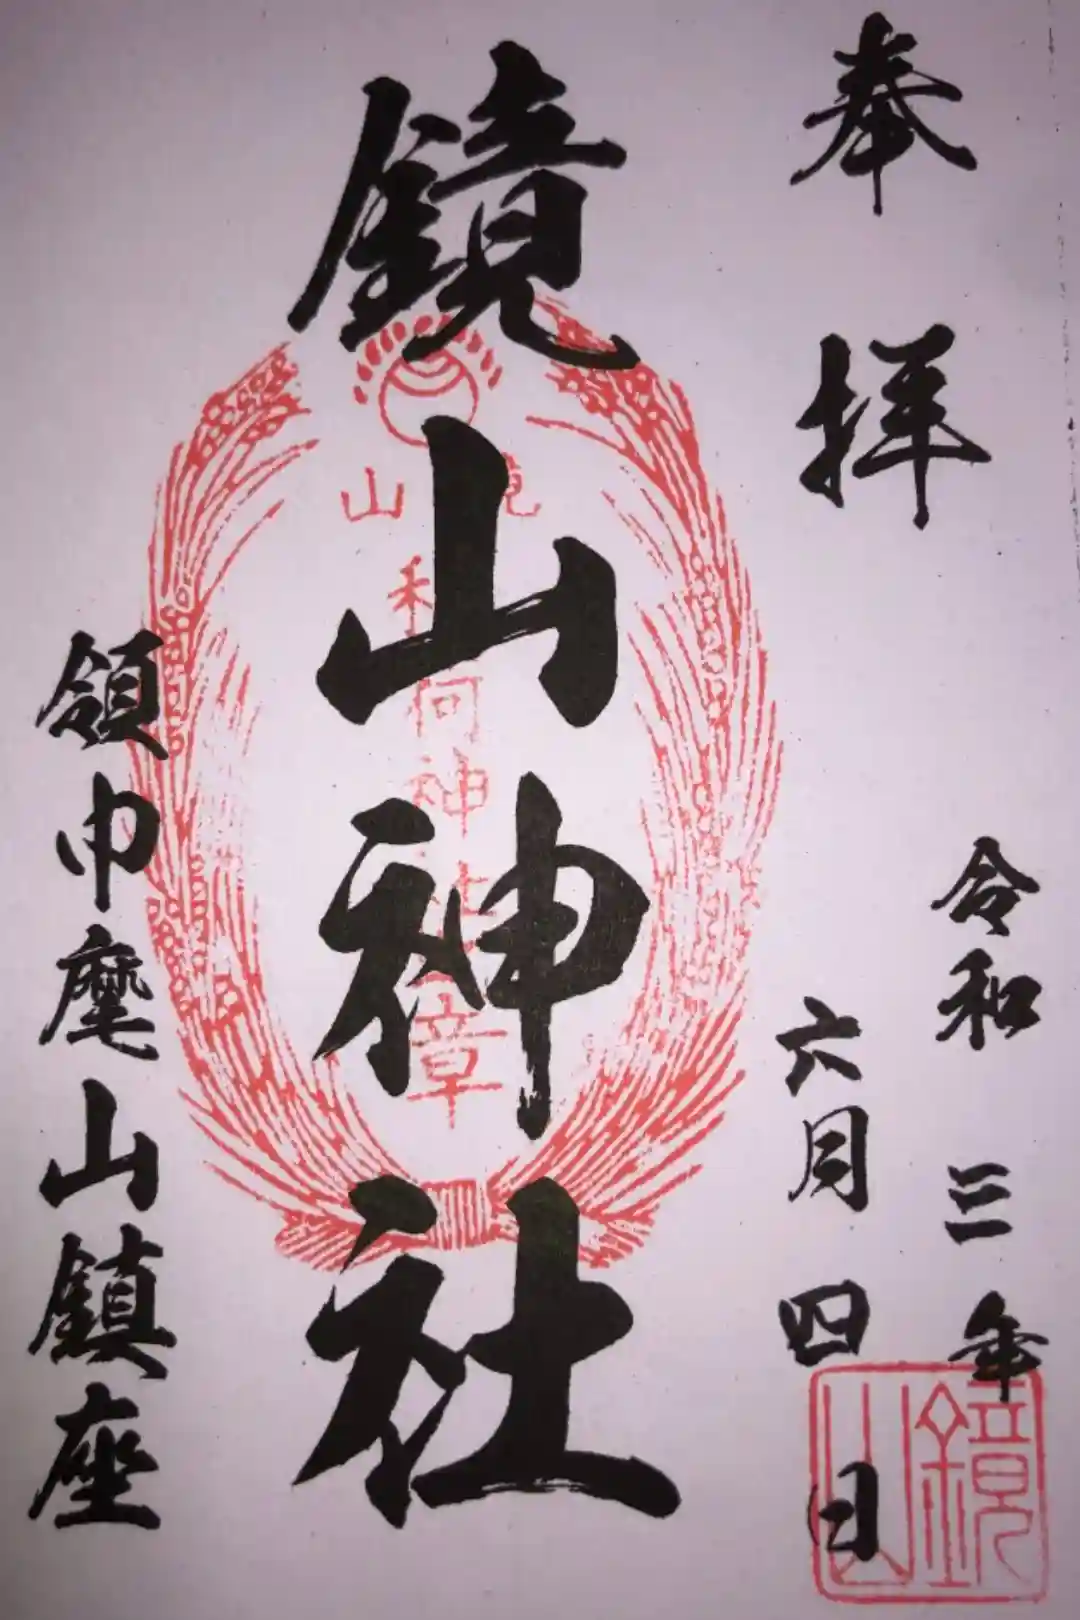 奉拝
令和三年
六月四日
鏡山神社
鏡山
稲荷神社
章
領巾麾山鎮座
鏡山